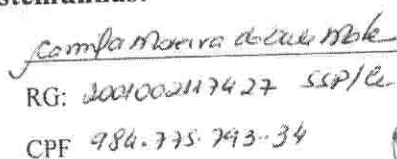 temunhas.
Camila Moreira da Cruz
RG: 2001002117427 SSP/Ce
CPF 984.775.793-34